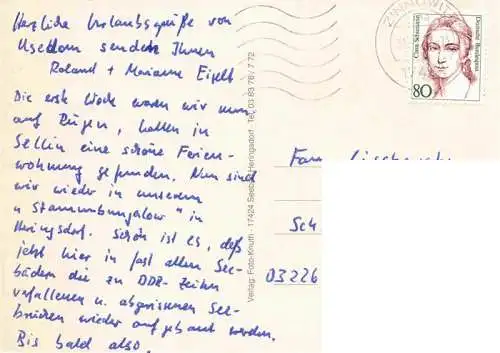 Herzliche Urlaubsgrüße von
Usedom senden Ihnen
Roland + Marianne
Die erste Woche waren wir nun
auf Rügen, hatten in
Sellin eine schöne Ferien-
wohnung gefunden. Nun sind
wir wieder in unserem
"Stammbungalow" in
Heringsdorf. Schön ist es, daß
jetzt hier in fast allen See-
bädern die zu DDR-Zeiten
verfallenen u. abgerissenen See-
brücken wieder aufgebaut werden.
Bis bald also.
Verlag: Foto-Knuth · 17424 Seebad Heringsdorf · Tel. 03 83 78 / 7 72
ZINNOWITZ
Clara Schumann
Deutsche Bundespost
80
Fam.
Sch
03226